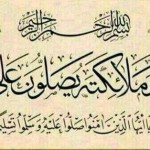 بسم الله الرحمن الرحيم
وملائكته يصلون على
يا أيها الذين آمنوا صلوا عليه وسلموا